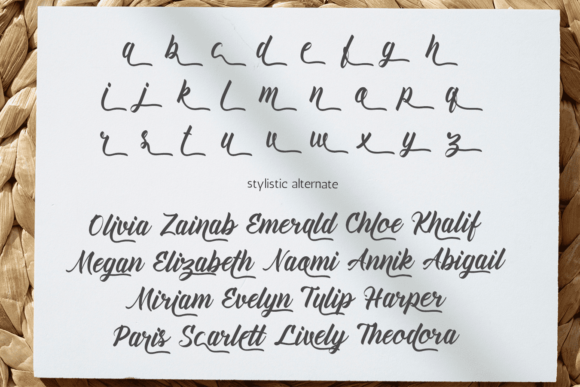 a b c d e f g h
i j k l m n o p q
r s t u v w x y z
stylistic alternate
Olivia Zainab Emerald Chloe Khalif
Megan Elizabeth Naomi Annik Abigail
Miriam Evelyn Tulip Harper
Paris Scarlett Lively Theodora